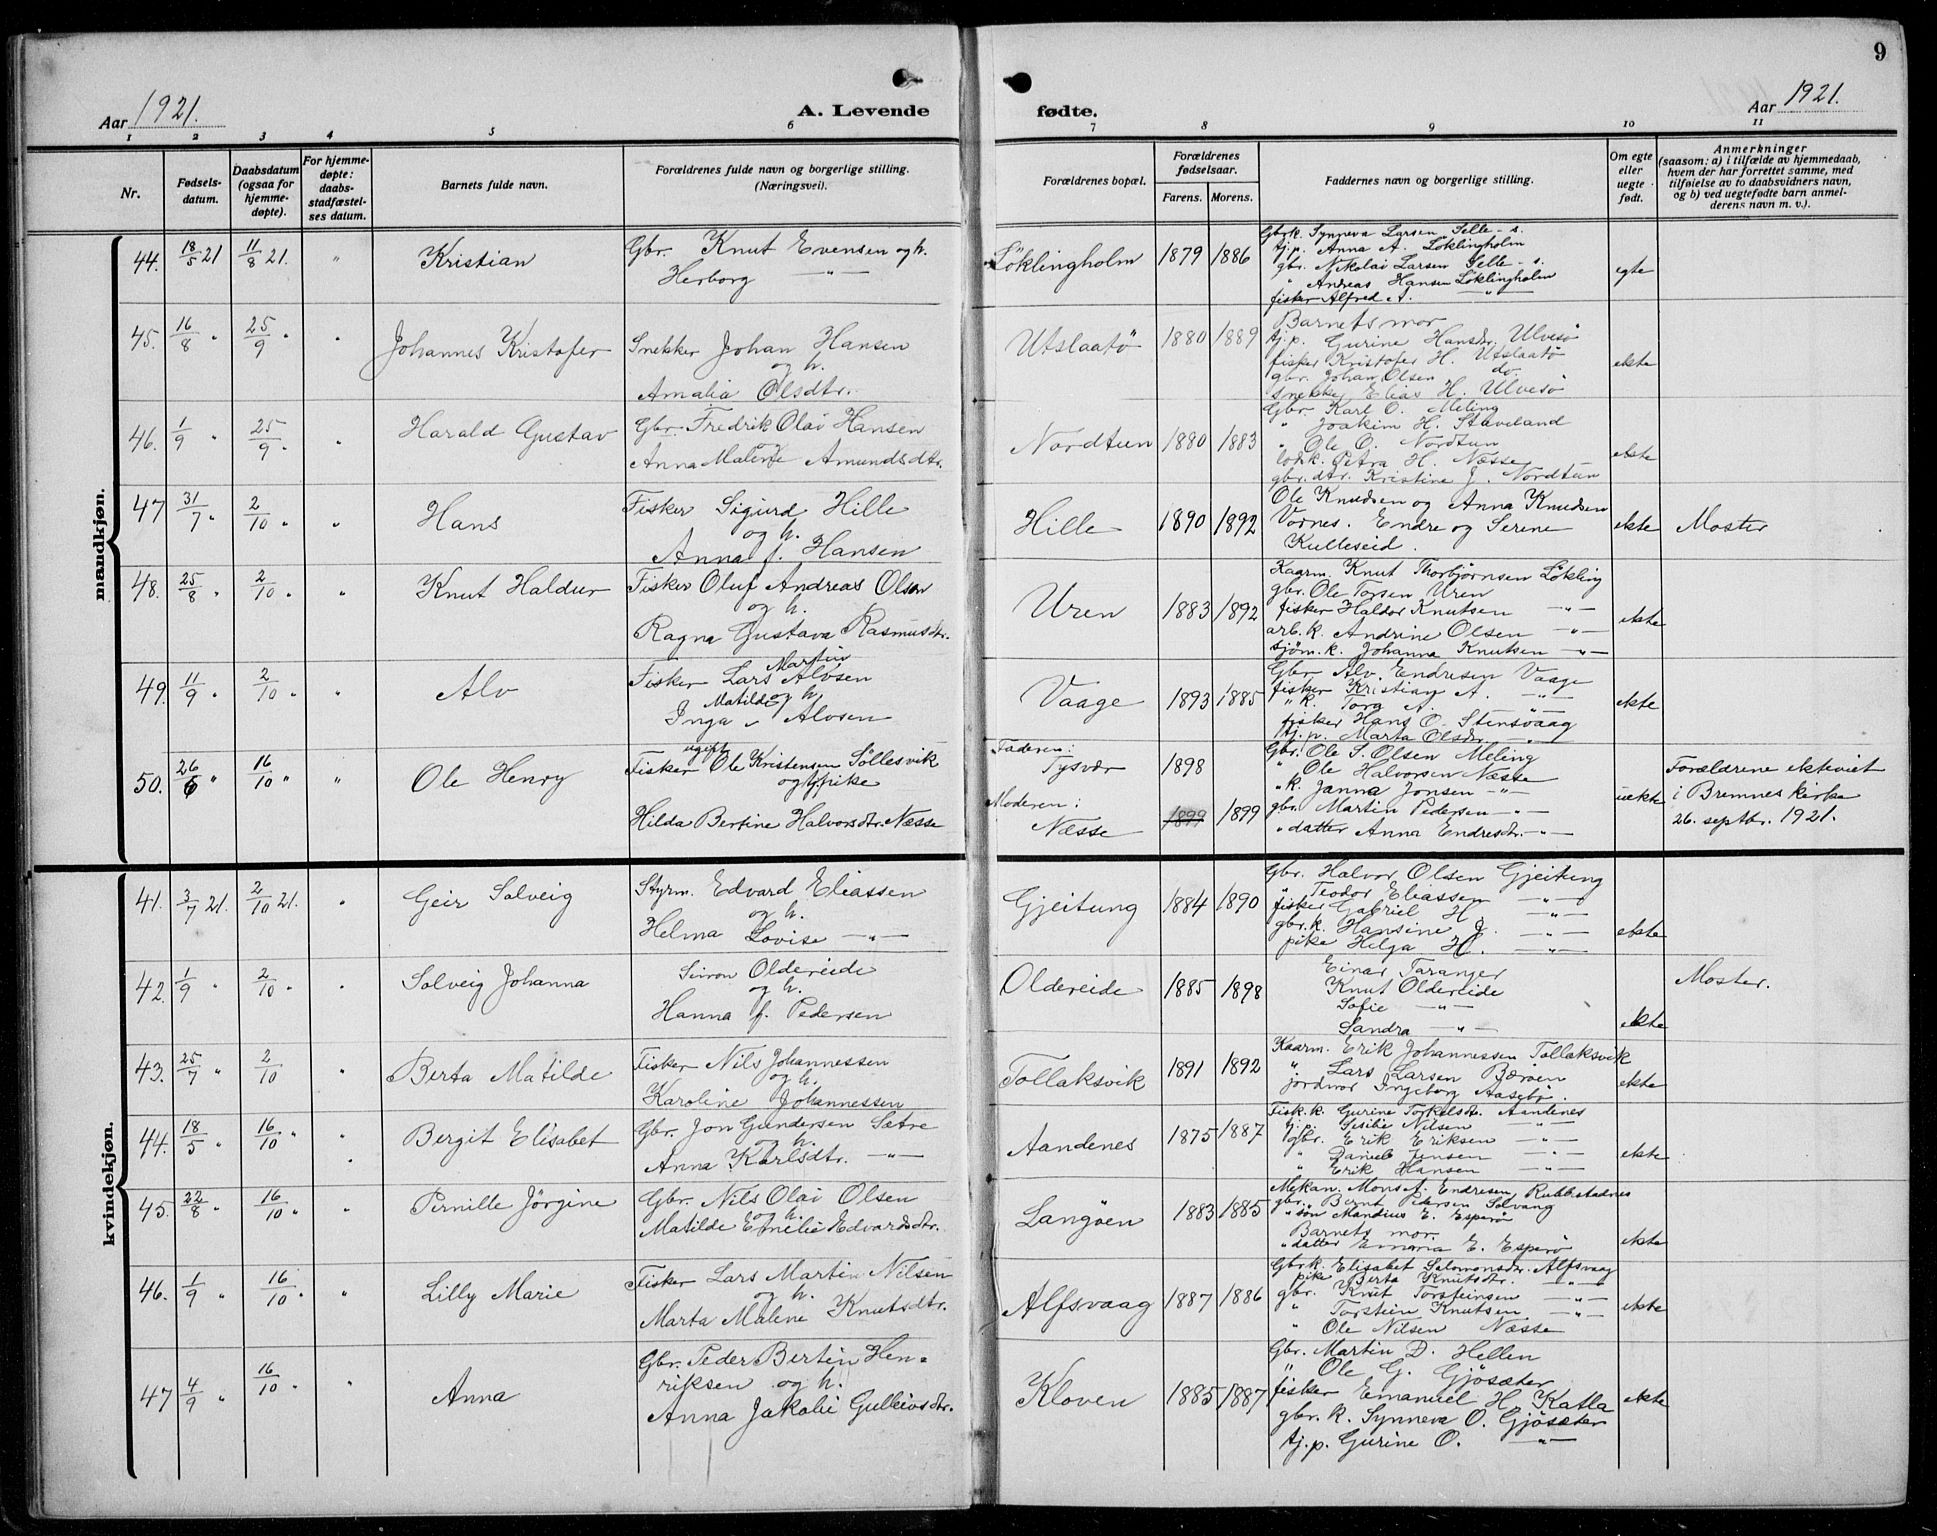 9
Aar 1921.
A. Levende fødte.
Aar 1921.
1 2 3 4 5 6 7 8 9 10 11
Nr.
Fødsels-
datum.
Daabsdatum
(ogsaa for
hjemme-
døpte).
For hjemme-
døpte:
daabs-
stadfæstel-
ses datum.
Barnets fulde navn.
Forældrenes fulde navn og borgerlige stilling.
(Næringsvei).
Forældrenes bopæl.
Forældrenes
fødselsaar.
Farens. Morens.
Faddernes navn og borgerlige stilling.
Om egte
eller
uegte
født.
Anmerkninger
(saasom: a) i tilfælde av hjemmedaab,
hvem der har forrettet samme, med
tilføielse av to daabsvidners navn,
og b) ved uegtefødte barn anmel-
derens navn m. v.).
mandkjøn.
44. 18/5 21 11/8 21. " Kristian
Gbr. Knut Evensen og h.
Herborg —"—
Löklingholm 1879 1886
Gbrk. Synneva Larsen Selle - s.
tj.p. Anna A. Löklingholm
gbr. Nikolai Larsen Selle - s.
" Andreas Hansen Löklingholm
fisker Alfred A. —"—
egte
45. 16/8 " 25/9 " " Johannes Kristofer
Snekker Johan Hansen
og h.
Amalia Olsdtr.
Utslaatö 1880 1889
Barnets mor
tj.p. Gurine Hansdr. Ulvesö
fisker Kristofer H. Utslaatö
gbr. Johan Olsen do.
snekker Elias H. Ulvesö
ekte
46. 1/9 " 25/9 " " Harald Gustav
Gbr. Fredrik Olai Hansen
og h.
Anna Malene Amundsdtr.
Nordtun 1880 1883
Gbr. Karl O. Meling
" Joakim H. Staveland
" Ole O. Nordtun
lodsk. Petra H. Næsse
gbr.dtr. Kristine J. Nordtun
ekte
47 31/7 " 2/10 " " Hans
Fisker Sigurd Hille
og h.
Anna f. Hansen
Hille 1890 1892
Ole Knudsen og Anna Knudsen
Vornes. Endre og Serene
Kulleseid.
ekte Moster
48. 25/8 " 2/10 " " Knut Haldur
Fisker Oluf Andreas Olson
og h.
Ragna Gustava Rasmusdtr.
Uren 1883 1892
Kaarm. Knut Thorbjörnsen Lökling
gbr. Ole Torsen Uren
fisker Haldor Knutsen —"—
arb.k. Andrine Olsen —"—
sjöm.k. Johanna Knutsen —"—
ekte
49. 11/9 " 2/10 " " Alv
Martin
Fisker Lars Alvsen
Matilde og h.
Inga " Alvsen
Vaage 1893 1885
Gbr Alv. Endresen Vaage
fisker Kristian A. —"—
" k. Tora A. —"—
fisker Hans O. Stensvaag
tj.p. Marta Olsdr. —"—
ekte
50. 26/6 " 16/10 " " Ole Henry
ugift
Fisker Ole Kristensen Söllesvik
og tj.pike
Hilda Bertine Halvorsdtr. Næsse
Faderen:
Tysvær 1898
Moderen:
Næsse 1899 1899
Gbr. Ole S. Olsen Meling
" Ole Halvorsen Næsse
" k. Janna Jonsen —"—
gbr. Martin Pedersen —"—
" datter Anna Endresdtr. —"—
uekte
Forældrene ekteviet
i Bremnes kirke
26. septbr. 1921.
kvindekjøn.
41. 3/7 21. 2/10 21. " Geir Solveig
Styrm. Edvard Eliassen
og h.
Helma Lovise —"—
Gjeitung 1884 1890
Gbr. Halvor Olsen Gjeitung
" Teodor Eliassen —"—
fisker Gabriel H —"—
gbr.k. Hansine J. —"—
pike Helga H. —"—
ekte
42. 1/9 " 2/10 " " Solveig Johanna
Simon Oldereide
og h.
Hanna f. Pedersen
Oldereide 1885 1898
Einar Taranger
Knut Oldereide
Sofie —"—
Sandra —"—
ekte Moster.
43. 25/7 " 2/10 " Berta Matilde
Fisker Nils Johannessen
og h.
Karoline Johannessen
Tollaksvik 1891 1892
Kaarm. Erik Johannessen Tollaksvik
" Lars Larsen Bæröen
jordmor Ingeborg Aasebö.
ekte
44. 18/5 " 16/10 " " Bergit Elisabet
Gbr. Jon Gundersen Sætre
og h.
Anna Karlsdtr. —"—
Aandenes 1875 1887
Fisk.k. Gurine Torkelsdtr. Aandenes
Sesilie Nilsen —"—
gbr. Erik Eriksen —"—
" Daniel Jensen —"—
" Erik Hansen —"—
ekte
45. 22/8 " 16/10 " " Pernille Jörgine
Gbr. Nils Olai Olsen
og h.
Matilde Emelie Edvardsdtr.
Langöen 1883 1885
Mekan. Mons A. Endresen Rubbestadnes
gbr. Bernt Pedersen Solvang
" sön Mandius E. Esperö
Barnets mor.
" datter Emma E. Esperö
ekte
46. 1/9 " 16/10 " " Lilly Marie
Fisker Lars Martin Nilsen
og h.
Marta Malene Knutsdtr.
Alfsvaag 1887 1886
Gbrk. Elisabet Salomonsdr. Alfsvaag
pike Berta Knutsdtr. —"—
gbr. Knut Torsteinsen —"—
" Torstein Knutsen —"—
" Ole Nilsen Næsse
ekte
47 4/9 " 16/10 " " Anna
Gbr. Peder Bertin Hen-
riksen og h.
Anna Jakobie Gulleivsdtr.
Kloven 1885 1887
Gbr. Martin D. Hellen
" Ole G. Gjösæter
fisker Emanuel H Katla
gbr. k. Synneva O. Gjösæter
tj.p. Gurine O. —"—
ekte